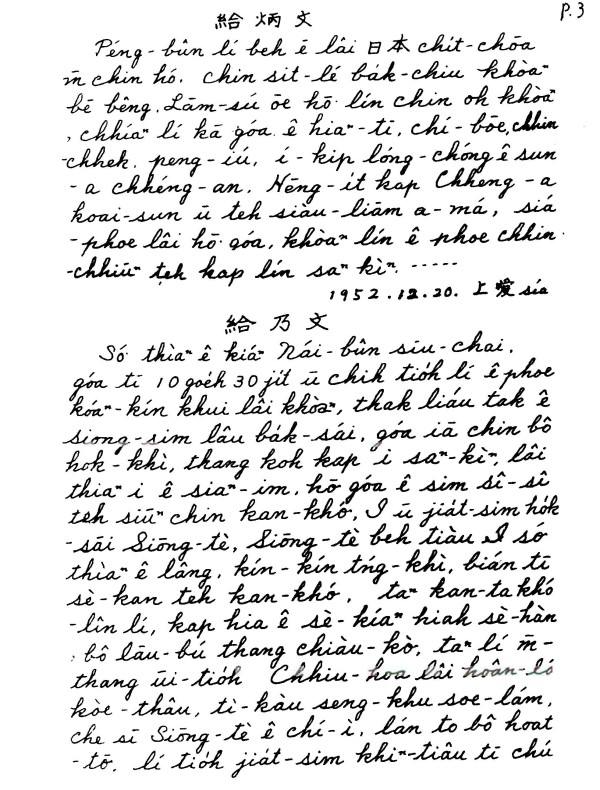 P.3
給炳文
Péng-bûn lí beh ē lâi 日本 chit-chōa
m̄ chin hó. chin sit-lé ba̍k-chiu khòaⁿ
bē bêng. Lām-sú ōe hō͘ lín chin oh khòaⁿ
, chhiáⁿ lí kā góa ê hiaⁿ-tī, chí-bōe, chhin
-chhek, peng-iú, í-ki̍p lóng-chóng ê sun
-a chhéng-an. Nēng-it kap Chheng-a
koai-sun ū teh siàu-liām a-má, siá
-phoe lâi hō͘ góa, khòaⁿ lín ê phoe chhin-
-chhiūⁿ teh kap lín saⁿ kìⁿ. -----
1952.12.20. 上愛 siá
給乃文
Só͘ thiàⁿ ê kiáⁿ Nái-bûn siu-chai.
góa tī 10 goe̍h 30 ji̍t ū chih tio̍h lí ê phoe
kóaⁿ-kín khui lâi khòaⁿ, tha̍k liáu ta̍k ê
siong-sim lâu ba̍k-sái, góa iā chin bô
hok-khì, thang koh kap i saⁿ-kìⁿ, lâi
thiaⁿ i ê siaⁿ-im. hō͘ góa ê sim sî-sî
teh siūⁿ chin kan-khó͘, I ū jia̍t-sim ho̍k
-sāi Siōng-tè, Siōng-tè beh tiàu I só͘
thiàⁿ ê lâng, kín-kín tńg-khì, bián tī
sè-kan teh kan-khó͘. taⁿ kan-ta khó
-lîn lí, kap hia ê sè-kíaⁿ hiah sè-hàn
, bô lāu-bú thang chiàu-kò͘, taⁿ lí m̄-
thang ūi-tio̍h Chhiu-hoa lâi hoân-ló
kòe-thâu, tì-kàu seng-khu soe-lám,
che sī Siōng-tè ê chí-ì, lán to bô hoat
-tō͘. lí tio̍h jia̍t-sim khiⁿ-tiâu tī chú